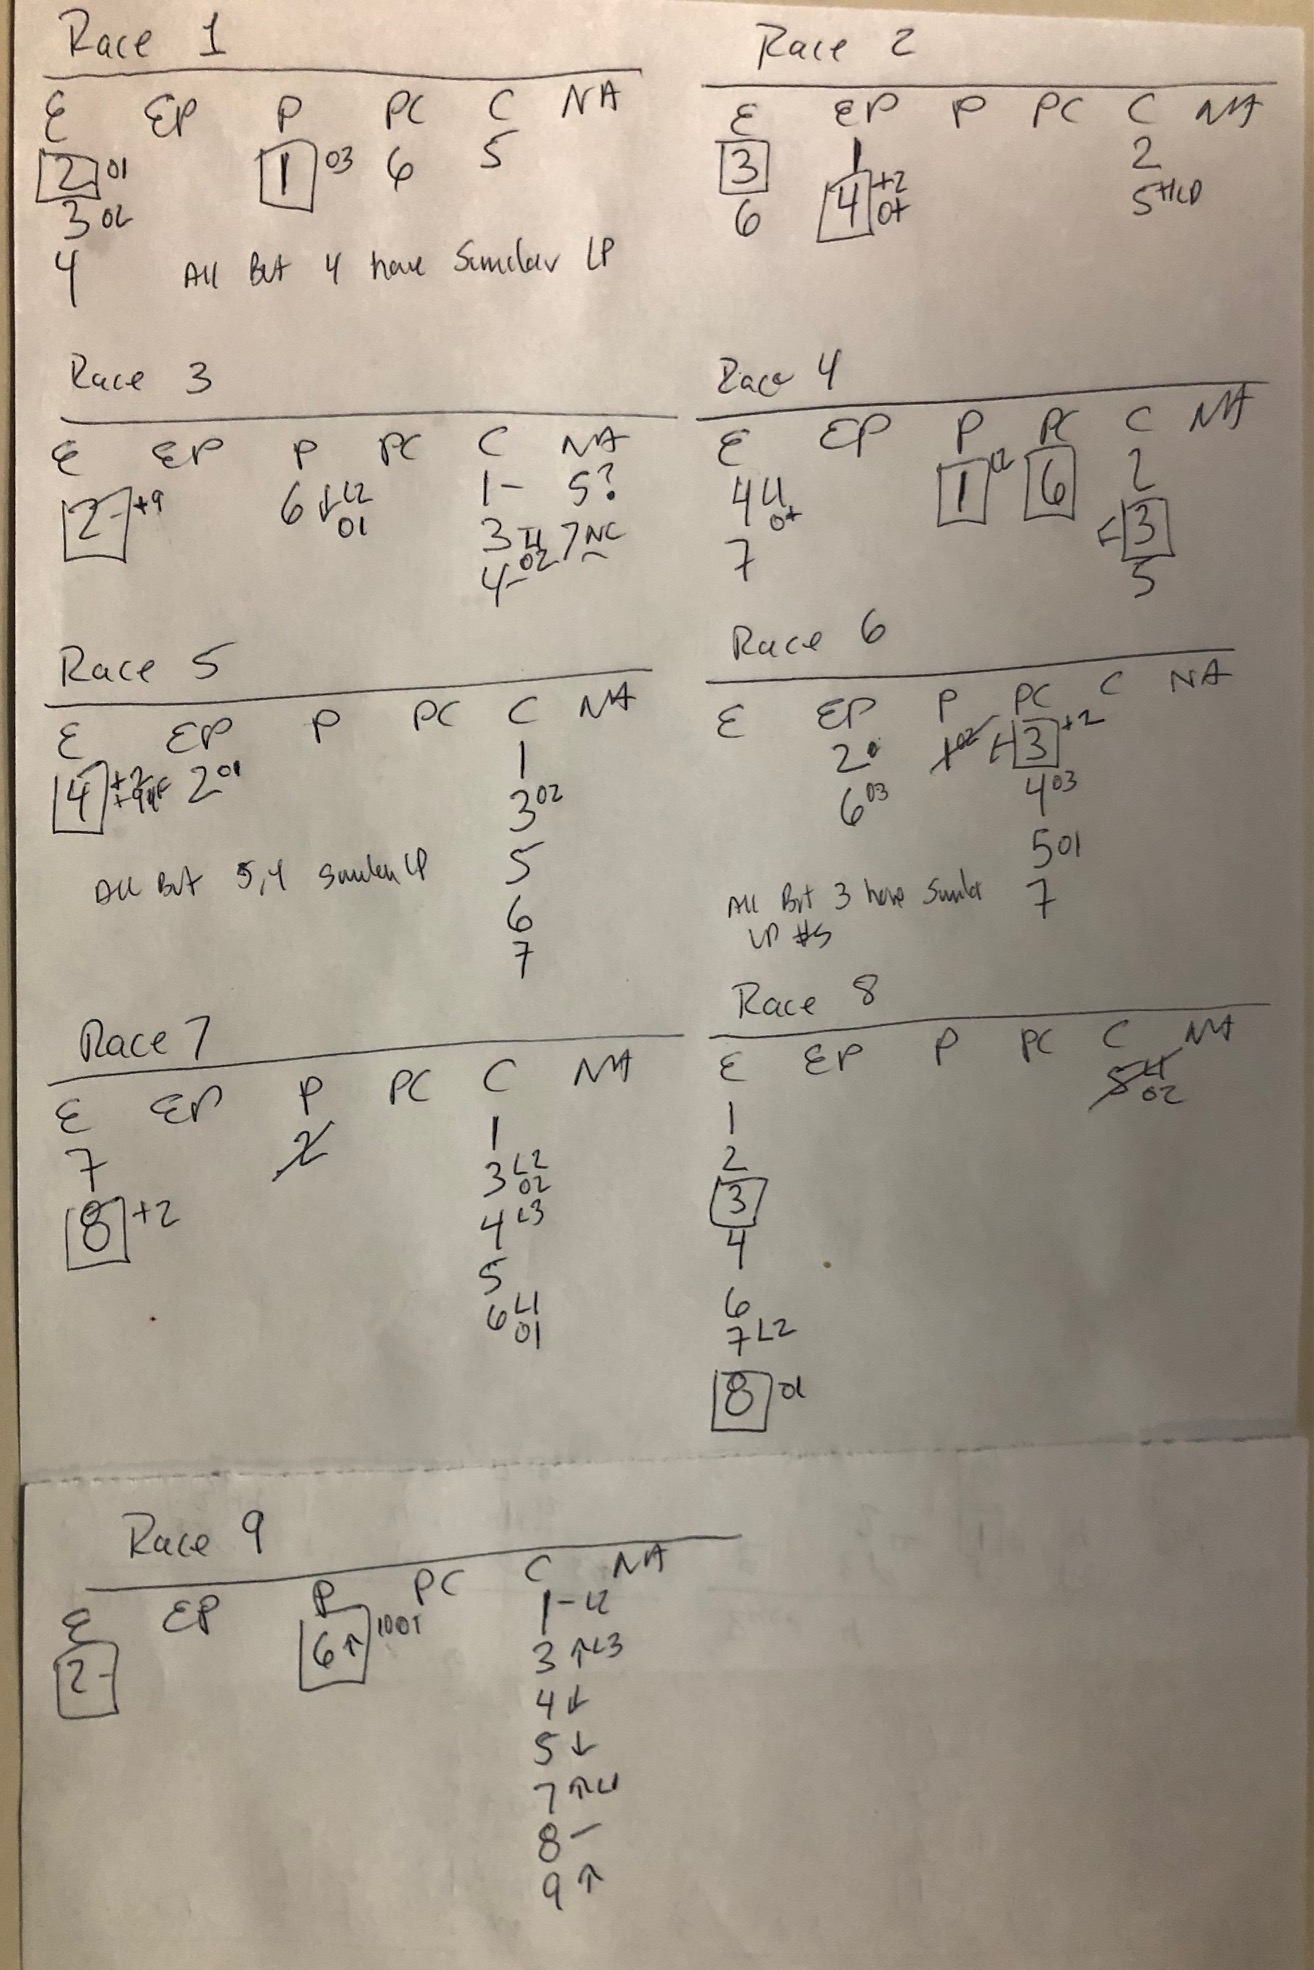 Race 1
E EP P PC C NA
2 01 1 03 6 5
3 02
4 All But 4 have Similar LP
Race 2
E EP P PC C NA
3 1 2
6 4 +2 0+ 5
Race 3
E EP P PC C NA
2- +9 6 ↓ L2 01 1- 5?
3 02 7 NC
4-
Race 4
E EP P PC C NA
4 L1 0+ 1 L2 6 2
7 3
5
Race 5
E EP P PC C NA
4 +2 2 01 1
3 02
All But 5,4 Similar LP 5
6
7
Race 6
E EP P PC C NA
2 1 02 3 +2
6 03 4 03
5 01
All But 3 have Similar 7
LP #s
Race 7
E EP P PC C NA
7 2 1
8 +2 3 L2 02
4 L3
5
6 L1 01
Race 8
E EP P PC C NA
1 5 L1 02
2
3
4
6
7 L2
8 01
Race 9
E EP P PC C NA
2- 6↑ 1001 1- L2
3 ↑ L3
4 ↓
5 ↓
7 ↑ L1
8 -
9 ↑